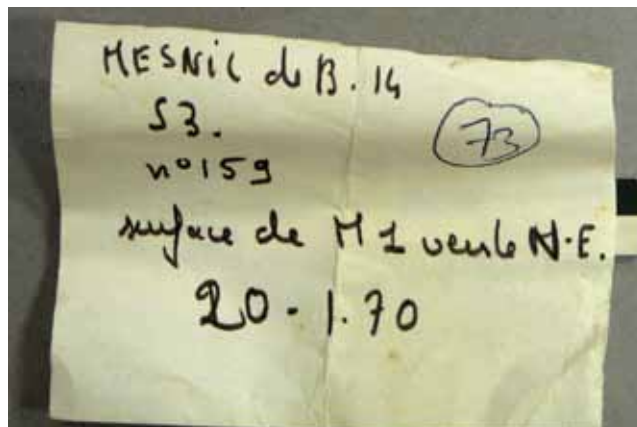 MESNIL de B. 14
S3.
73
n° 159
surface de M 1 vers le N.E.
20-1.70